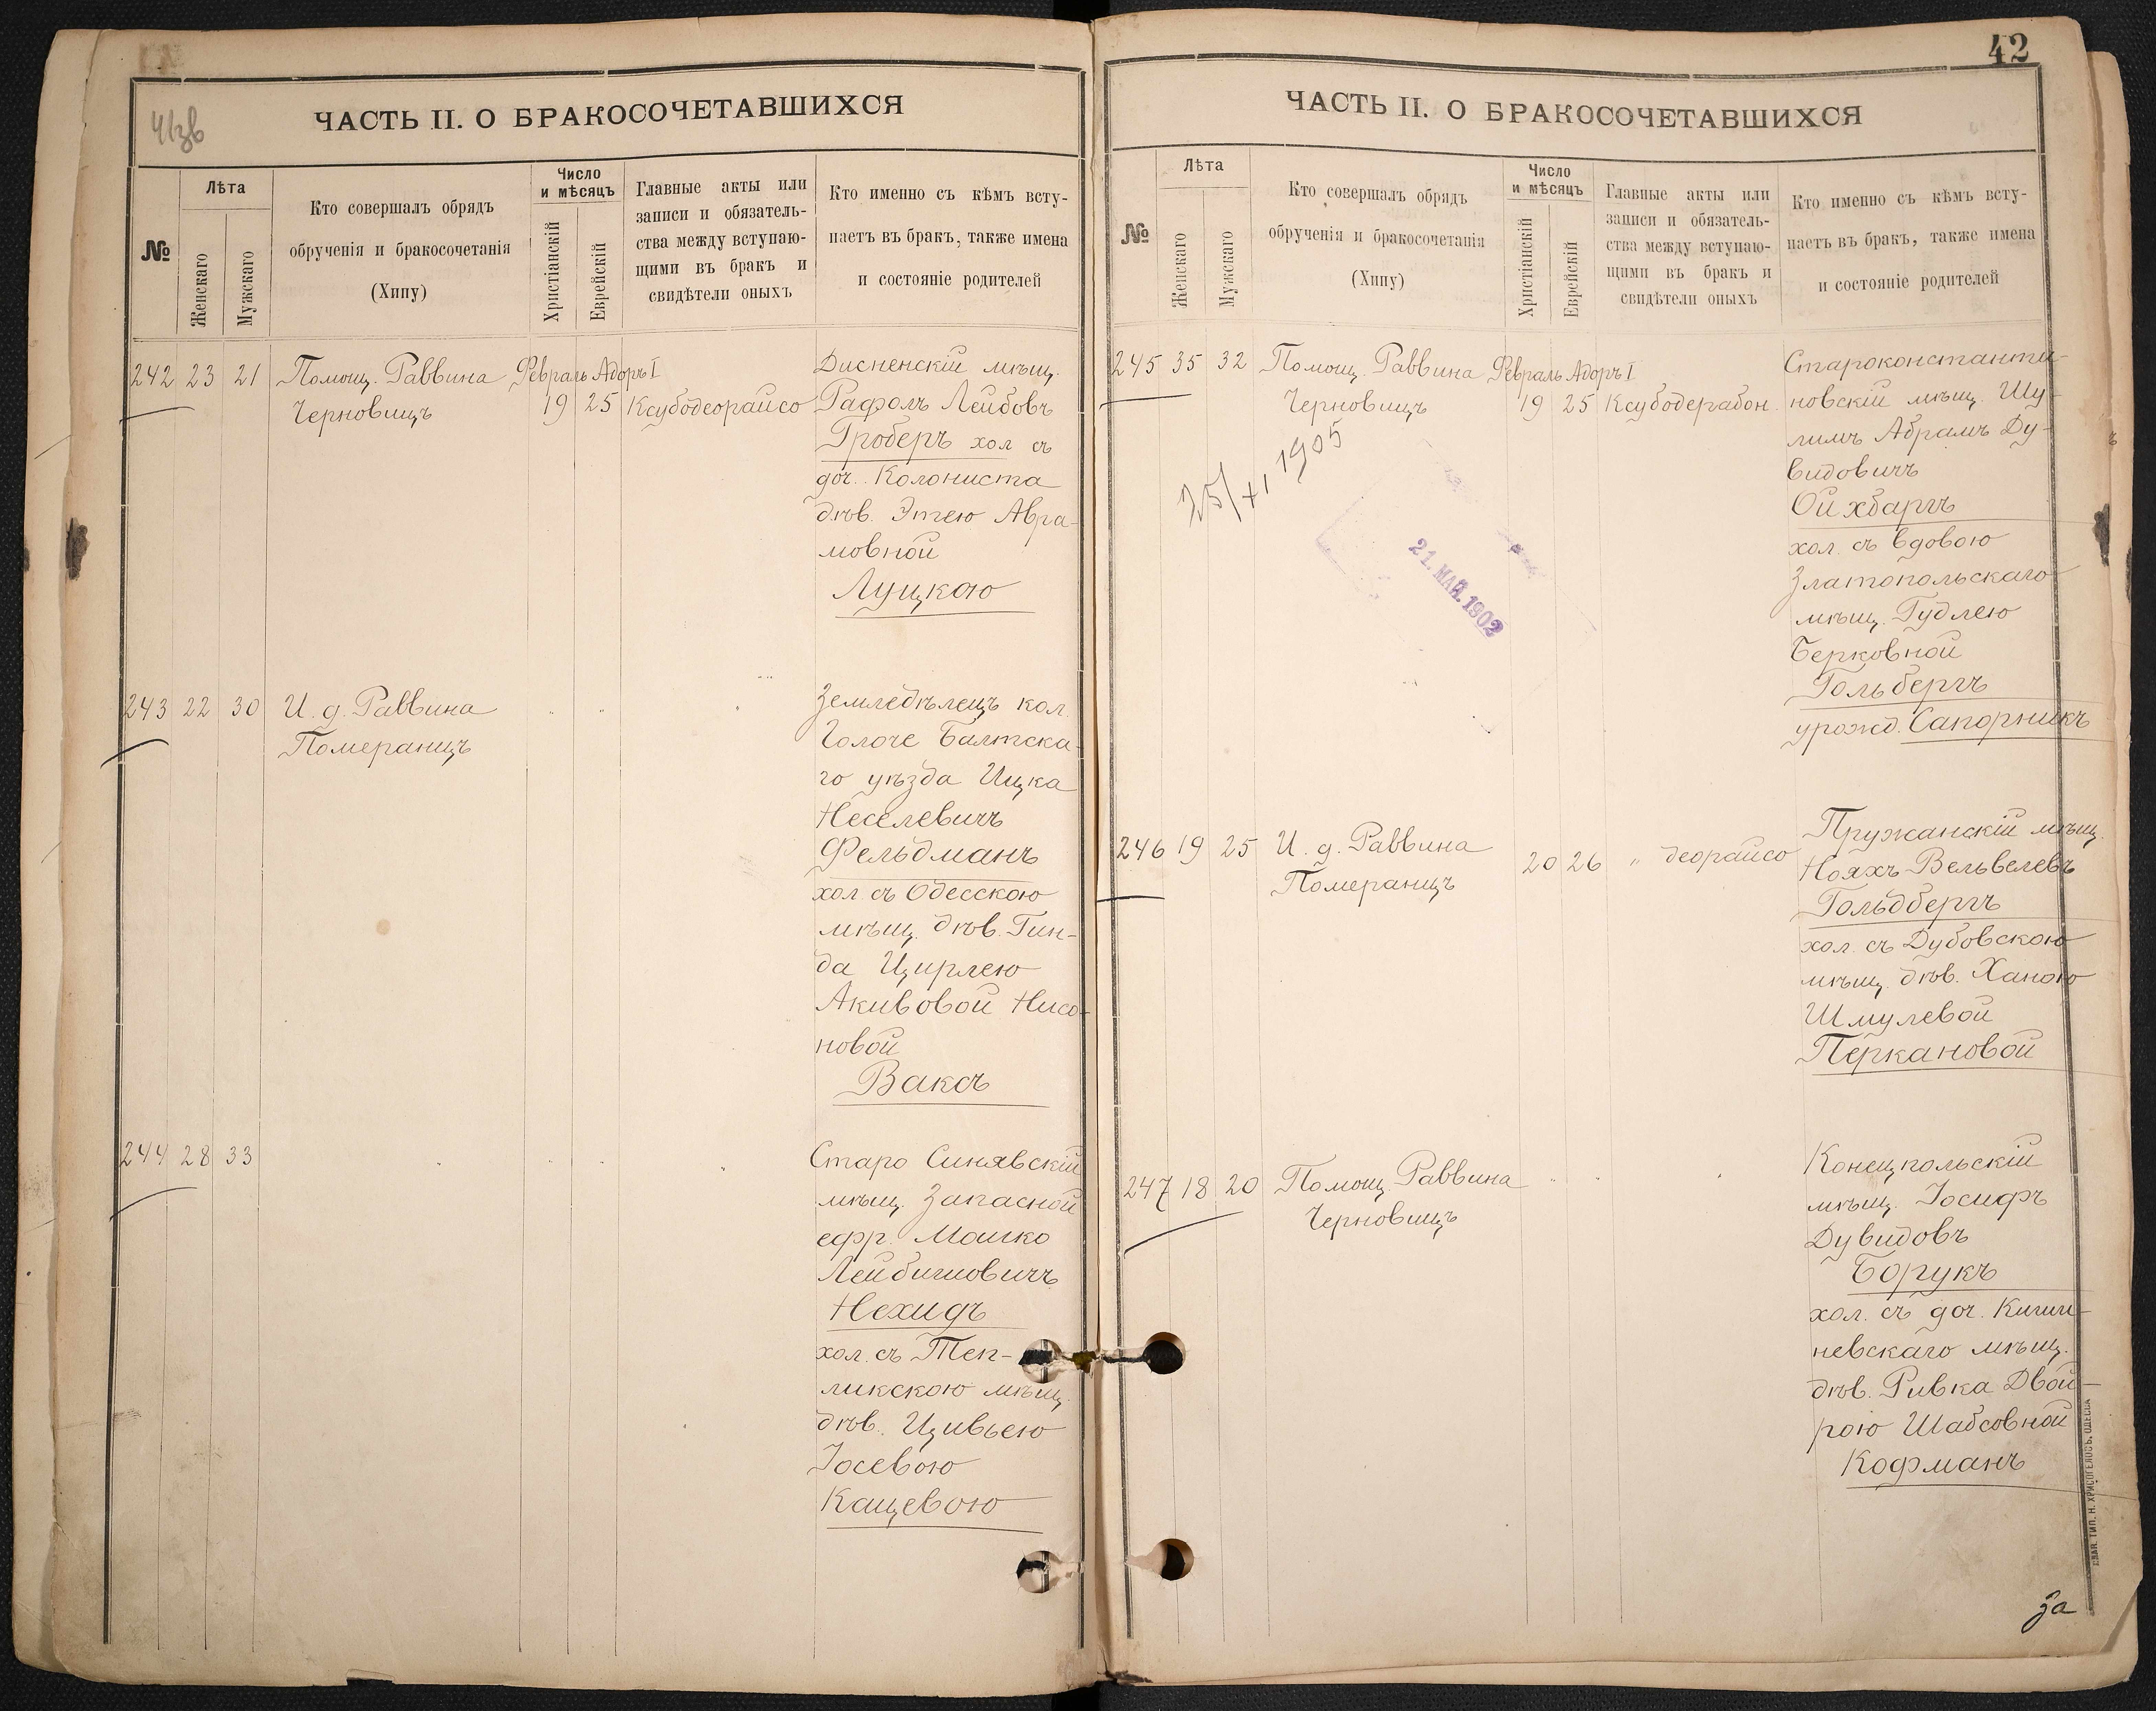 41зв
ЧАСТЬ II. О БРАКОСОЧЕТАВШИХСЯ
№
Лѣта
Женскаго
Мужскаго
Кто совершалъ обрядъ
обрученія и бракосочетанія
(Хипу)
Число
и мѣсяцъ
Христіанскій
Еврейскій
Главные акты или
записи и обязатель-
ства между вступаю-
щими въ бракъ и
свидѣтели оныхъ
Кто именно съ кѣмъ всту-
паетъ въ бракъ, также имена
и состояніе родителей
242 23 21 Помощ. Раввина Февраль Адоръ I
Черновицъ 19 25 Ксубодеорайсо
Дисненскій мѣщ.
Рафолъ Лейбовъ
Гроберъ хол съ
доч. Колониста
дѣв. Этею Авра-
мовной
Луцкою
243 22 30 И. д. Раввина
Померанцъ
Земледѣлецъ кол.
Голоче Балтска-
го уѣзда Ицка
Неселевичъ
Фельдманъ
хол съ Одесскою
мѣщ. дѣв. Гин-
да Цирлею
Акивовой Нисо-
новой
Ваксъ
244 28 33
Старо Синявскій
мѣщ. Запасной
ефр. Мошко
Лейбишовичъ
Нехидъ
хол. съ Теп-
ликскою мѣщ.
дѣв. Цивьею
Іосевою
Кацевою
42
ЧАСТЬ II. О БРАКОСОЧЕТАВШИХСЯ
№
Лѣта
Женскаго
Мужскаго
Кто совершалъ обрядъ
обрученія и бракосочетанія
(Хипу)
Число
и мѣсяцъ
Христіанскій
Еврейскій
Главные акты или
записи и обязатель-
ства между вступаю-
щими въ бракъ и
свидѣтели оныхъ
Кто именно съ кѣмъ всту-
паетъ въ бракъ, также имена
и состояніе родителей
245 35 32 Помощ. Раввина Февраль Адоръ I
Черновицъ 19 25 Ксубодерабон.
25/XI 1905
21. МАЙ. 1902
Староконстанти-
новскій мѣщ. Шу-
лимъ Абрамъ Ду-
видовичъ
Ойхбаргъ
хол. съ вдовою
Златопольскаго
мѣщ. Гудлею
Берковной
Гольбергъ
урожд. Сапорникъ
246 19 25 И. д. Раввина 20 26 " деорайсо
Померанцъ
Пружанскій мѣщ.
Нояхъ Вельвелевъ
Гольдбергъ
хол. съ Дубовскою
мѣщ. дѣв. Ханою
Шмулевой
Перкановой
247 18 20 Помощ. Раввина
Черновицъ
Конецпольскій
мѣщ. Іосифъ
Дувидовъ
Борукъ
хол. съ доч. Киши-
невскаго мѣщ.
дѣв. Ривка Двой-
рою Шабсовной
Кофманъ
ТИП. Н. ХРИСОГЕЛОСЪ, ОДЕССА
За